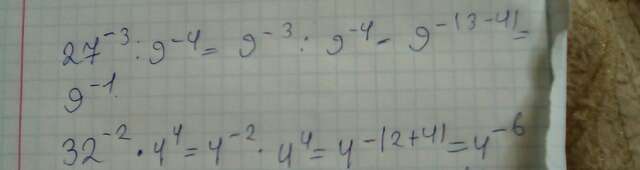 27⁻³ : 9⁻⁴ = 9⁻³ : 9⁻⁴ - 9⁻⁽³⁻⁴⁾ =
9⁻¹.
32⁻² · 4⁴ = 4⁻² · 4⁴ = 4⁻⁽²⁺⁴⁾ = 4⁻⁶